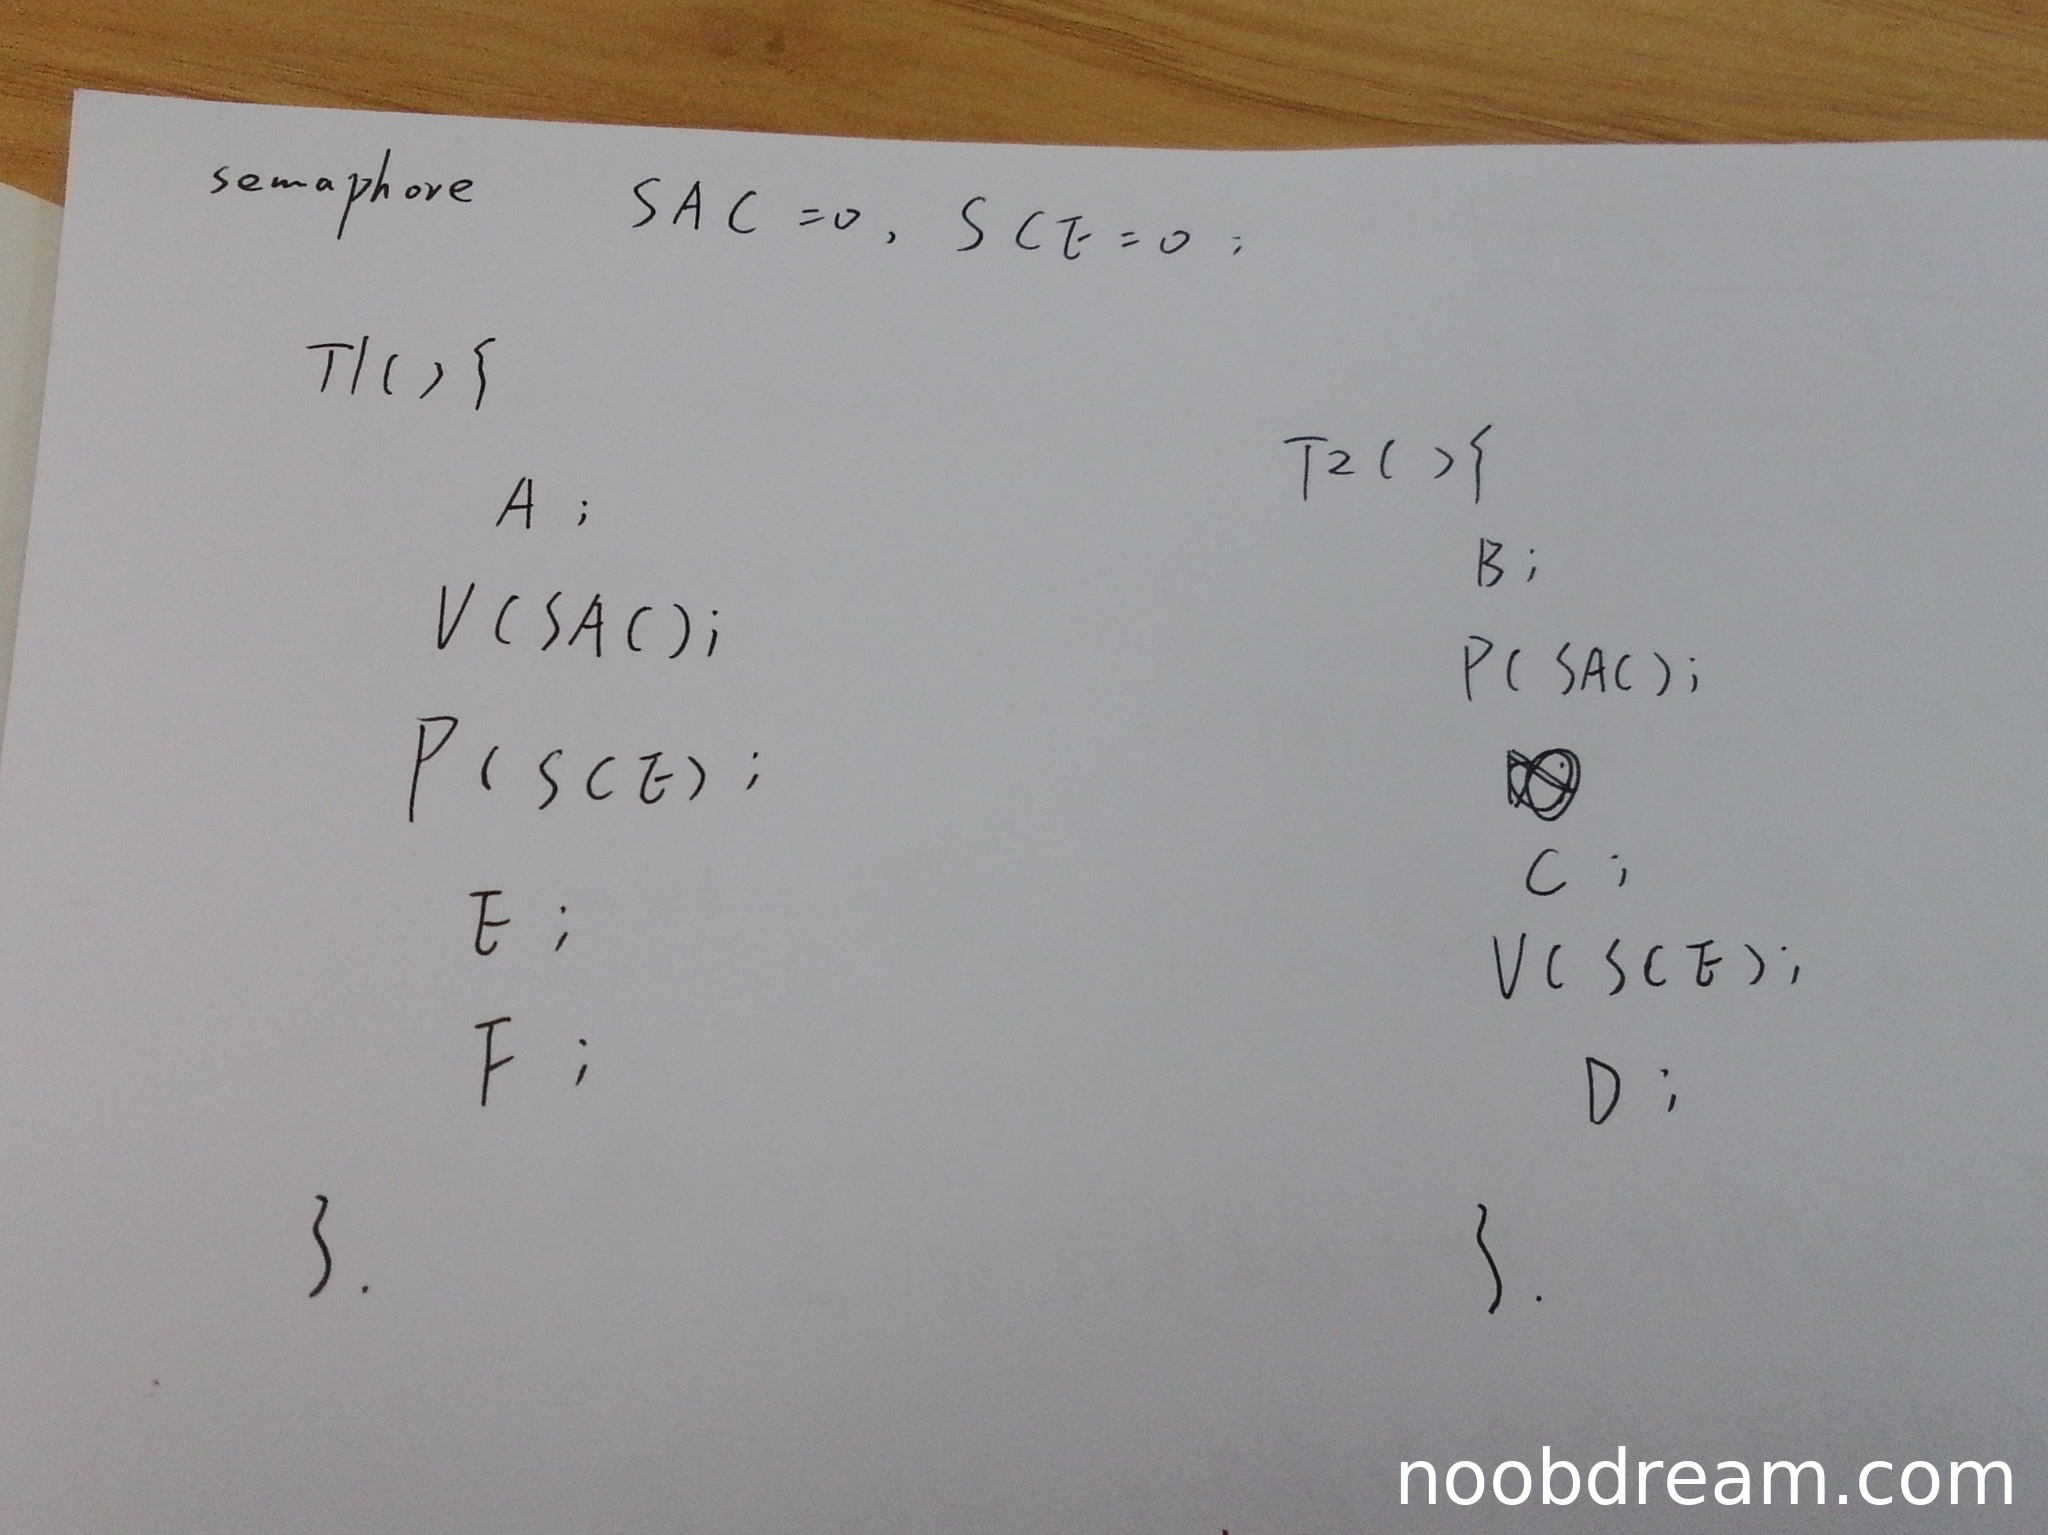 semaphore SAC=0, SCE=0;
T1(){
A;
V(SAC);
P(SCE);
E;
F;
}.
T2(){
B;
P(SAC);
C;
V(SCE);
D;
}.
noobdream.com